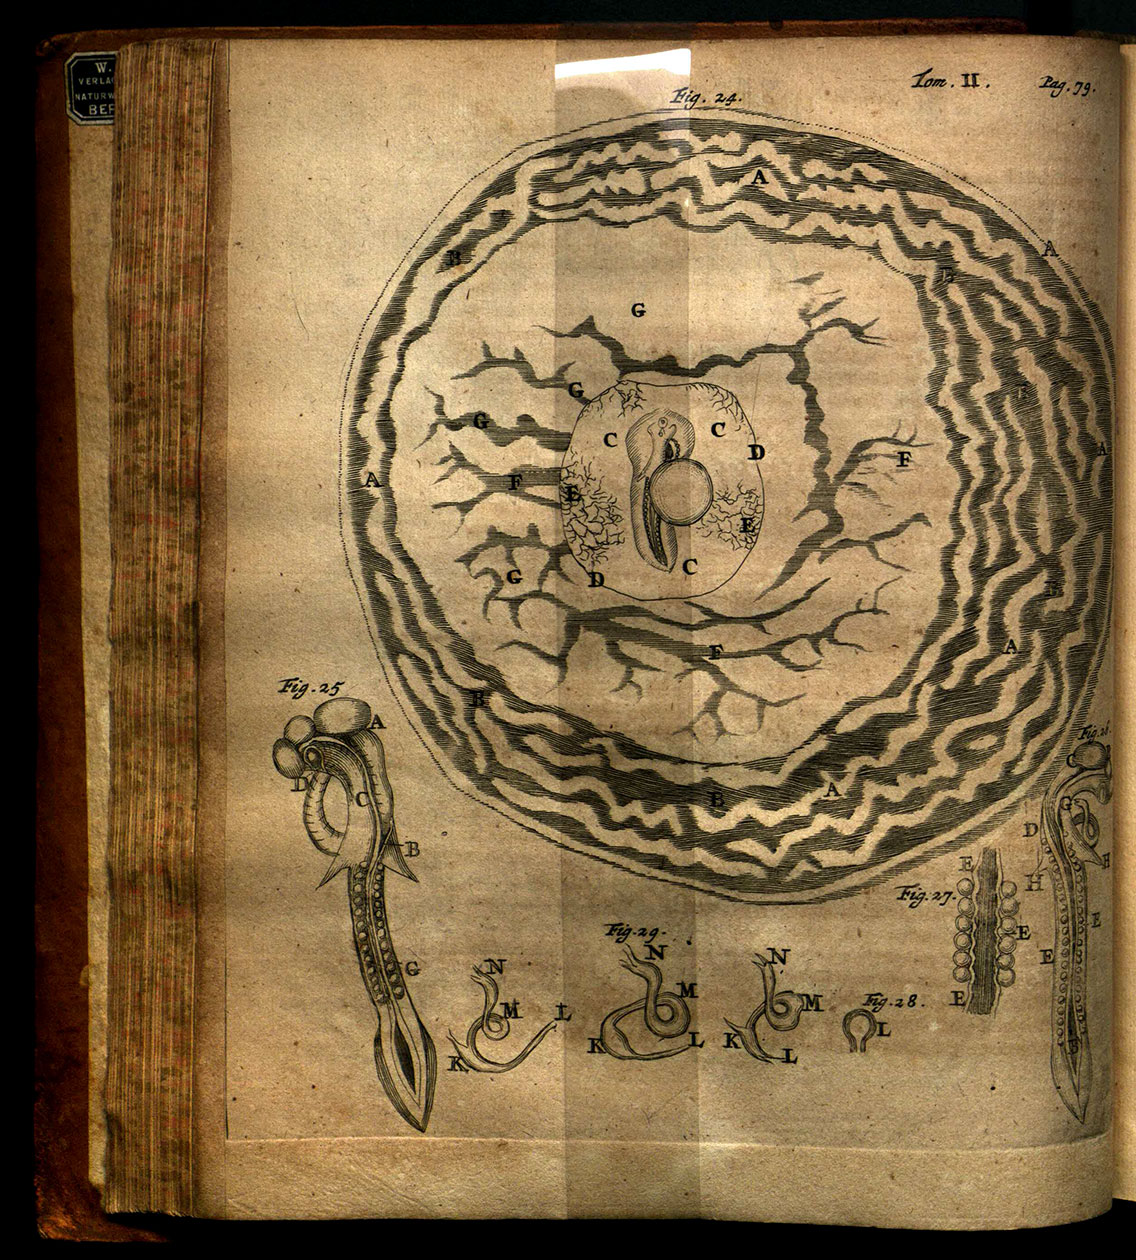 Tom. II. Pag. 79.
W.
VERLA
NATURW
BER
Fig. 24.
A
A
B
B
G
G
B
G
C
C
D
A
F
A
F
E
E
C
G
D
B
F
A
B
B
A
Fig. 25
A
D
C
B
G
Fig. 26.
G
D
H
H
E
E
Fig. 27.
E
E
E
Fig. 29.
N
M
L
K
N
M
K
L
N
M
K
L
Fig. 28.
L